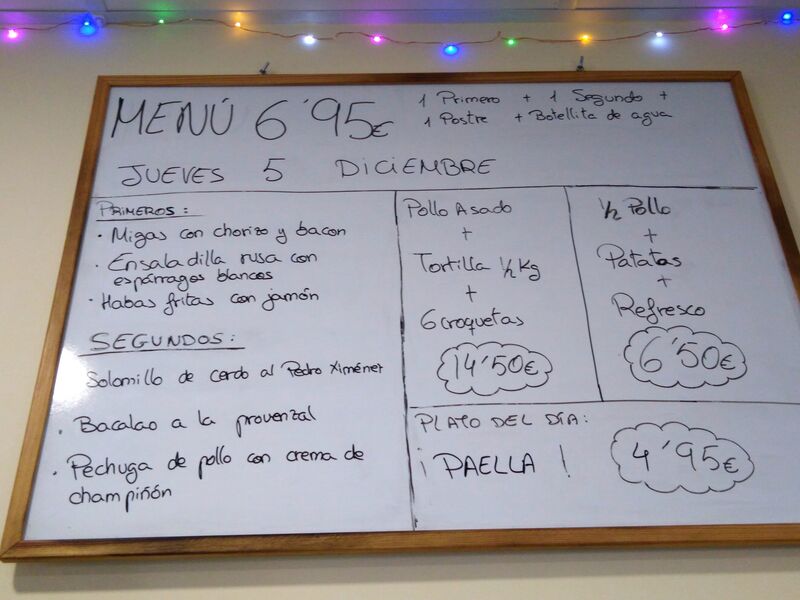 MENÚ 6'95€
1 Primero + 1 Segundo +
1 Postre + Botellita de agua
JUEVES 5 DICIEMBRE
PRIMEROS:
• Migas con chorizo y bacon
• Ensaladilla rusa con
espárragos blancos
• Habas fritas con jamón
SEGUNDOS:
Solomillo de cerdo al Pedro Ximénez
• Bacalao a la provenzal
• Pechuga de pollo con crema de
champiñón
Pollo Asado
+
Tortilla 1/2 Kg
+
6 croquetas
14'50€
1/2 Pollo
+
Patatas
+
Refresco
6'50€
PLATO DEL DÍA:
¡PAELLA!
4'95€